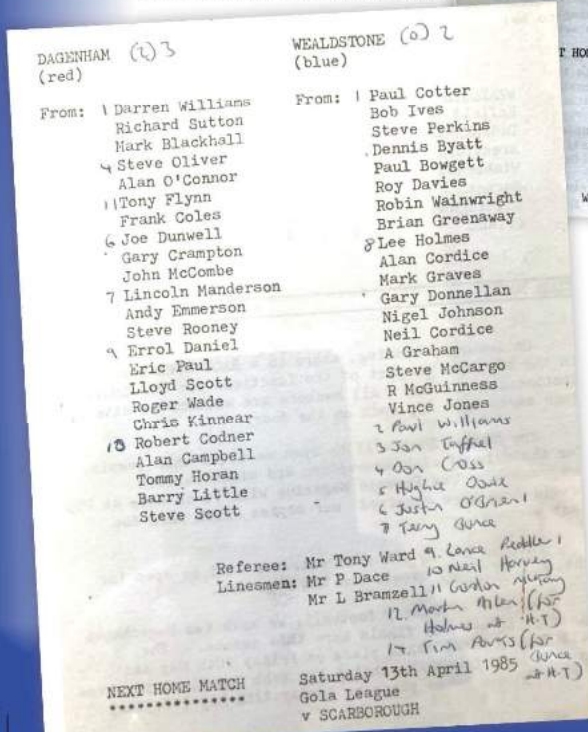 DAGENHAM (2) 3
(red)
From: 1 Darren Williams
Richard Sutton
Mark Blackhall
4 Steve Oliver
Alan O'Connor
11 Tony Flynn
Frank Coles
6 Joe Dunwell
Gary Crampton
John McCombe
7 Lincoln Manderson
Andy Emmerson
Steve Rooney
9 Errol Daniel
Eric Paul
Lloyd Scott
Roger Wade
Chris Kinnear
10 Robert Codner
Alan Campbell
Tommy Horan
Barry Little
Steve Scott
WEALDSTONE (0) 2
(blue)
From: 1 Paul Cotter
Bob Ives
Steve Perkins
Dennis Byatt
Paul Bowgett
Roy Davies
Robin Wainwright
Brian Greenaway
8 Lee Holmes
Alan Cordice
Mark Graves
Gary Donnellan
Nigel Johnson
Neil Cordice
A Graham
Steve McCargo
R McGuinness
Vince Jones
2 Paul Williams
3 Jon
4 Don Cross
5 Hughie
6 Justin O'Brien 1
7 Terry
9. Lance 1
10 Neil Harvey
11 Gordon
12. Martin Allen (for
Holmes at H-T)
14 Tim (for
at H-T)
Referee: Mr Tony Ward
Linesmen: Mr P Dace
Mr L Bramzell
NEXT HOME MATCH
***************
Saturday 13th April 1985
Gola League
v SCARBOROUGH